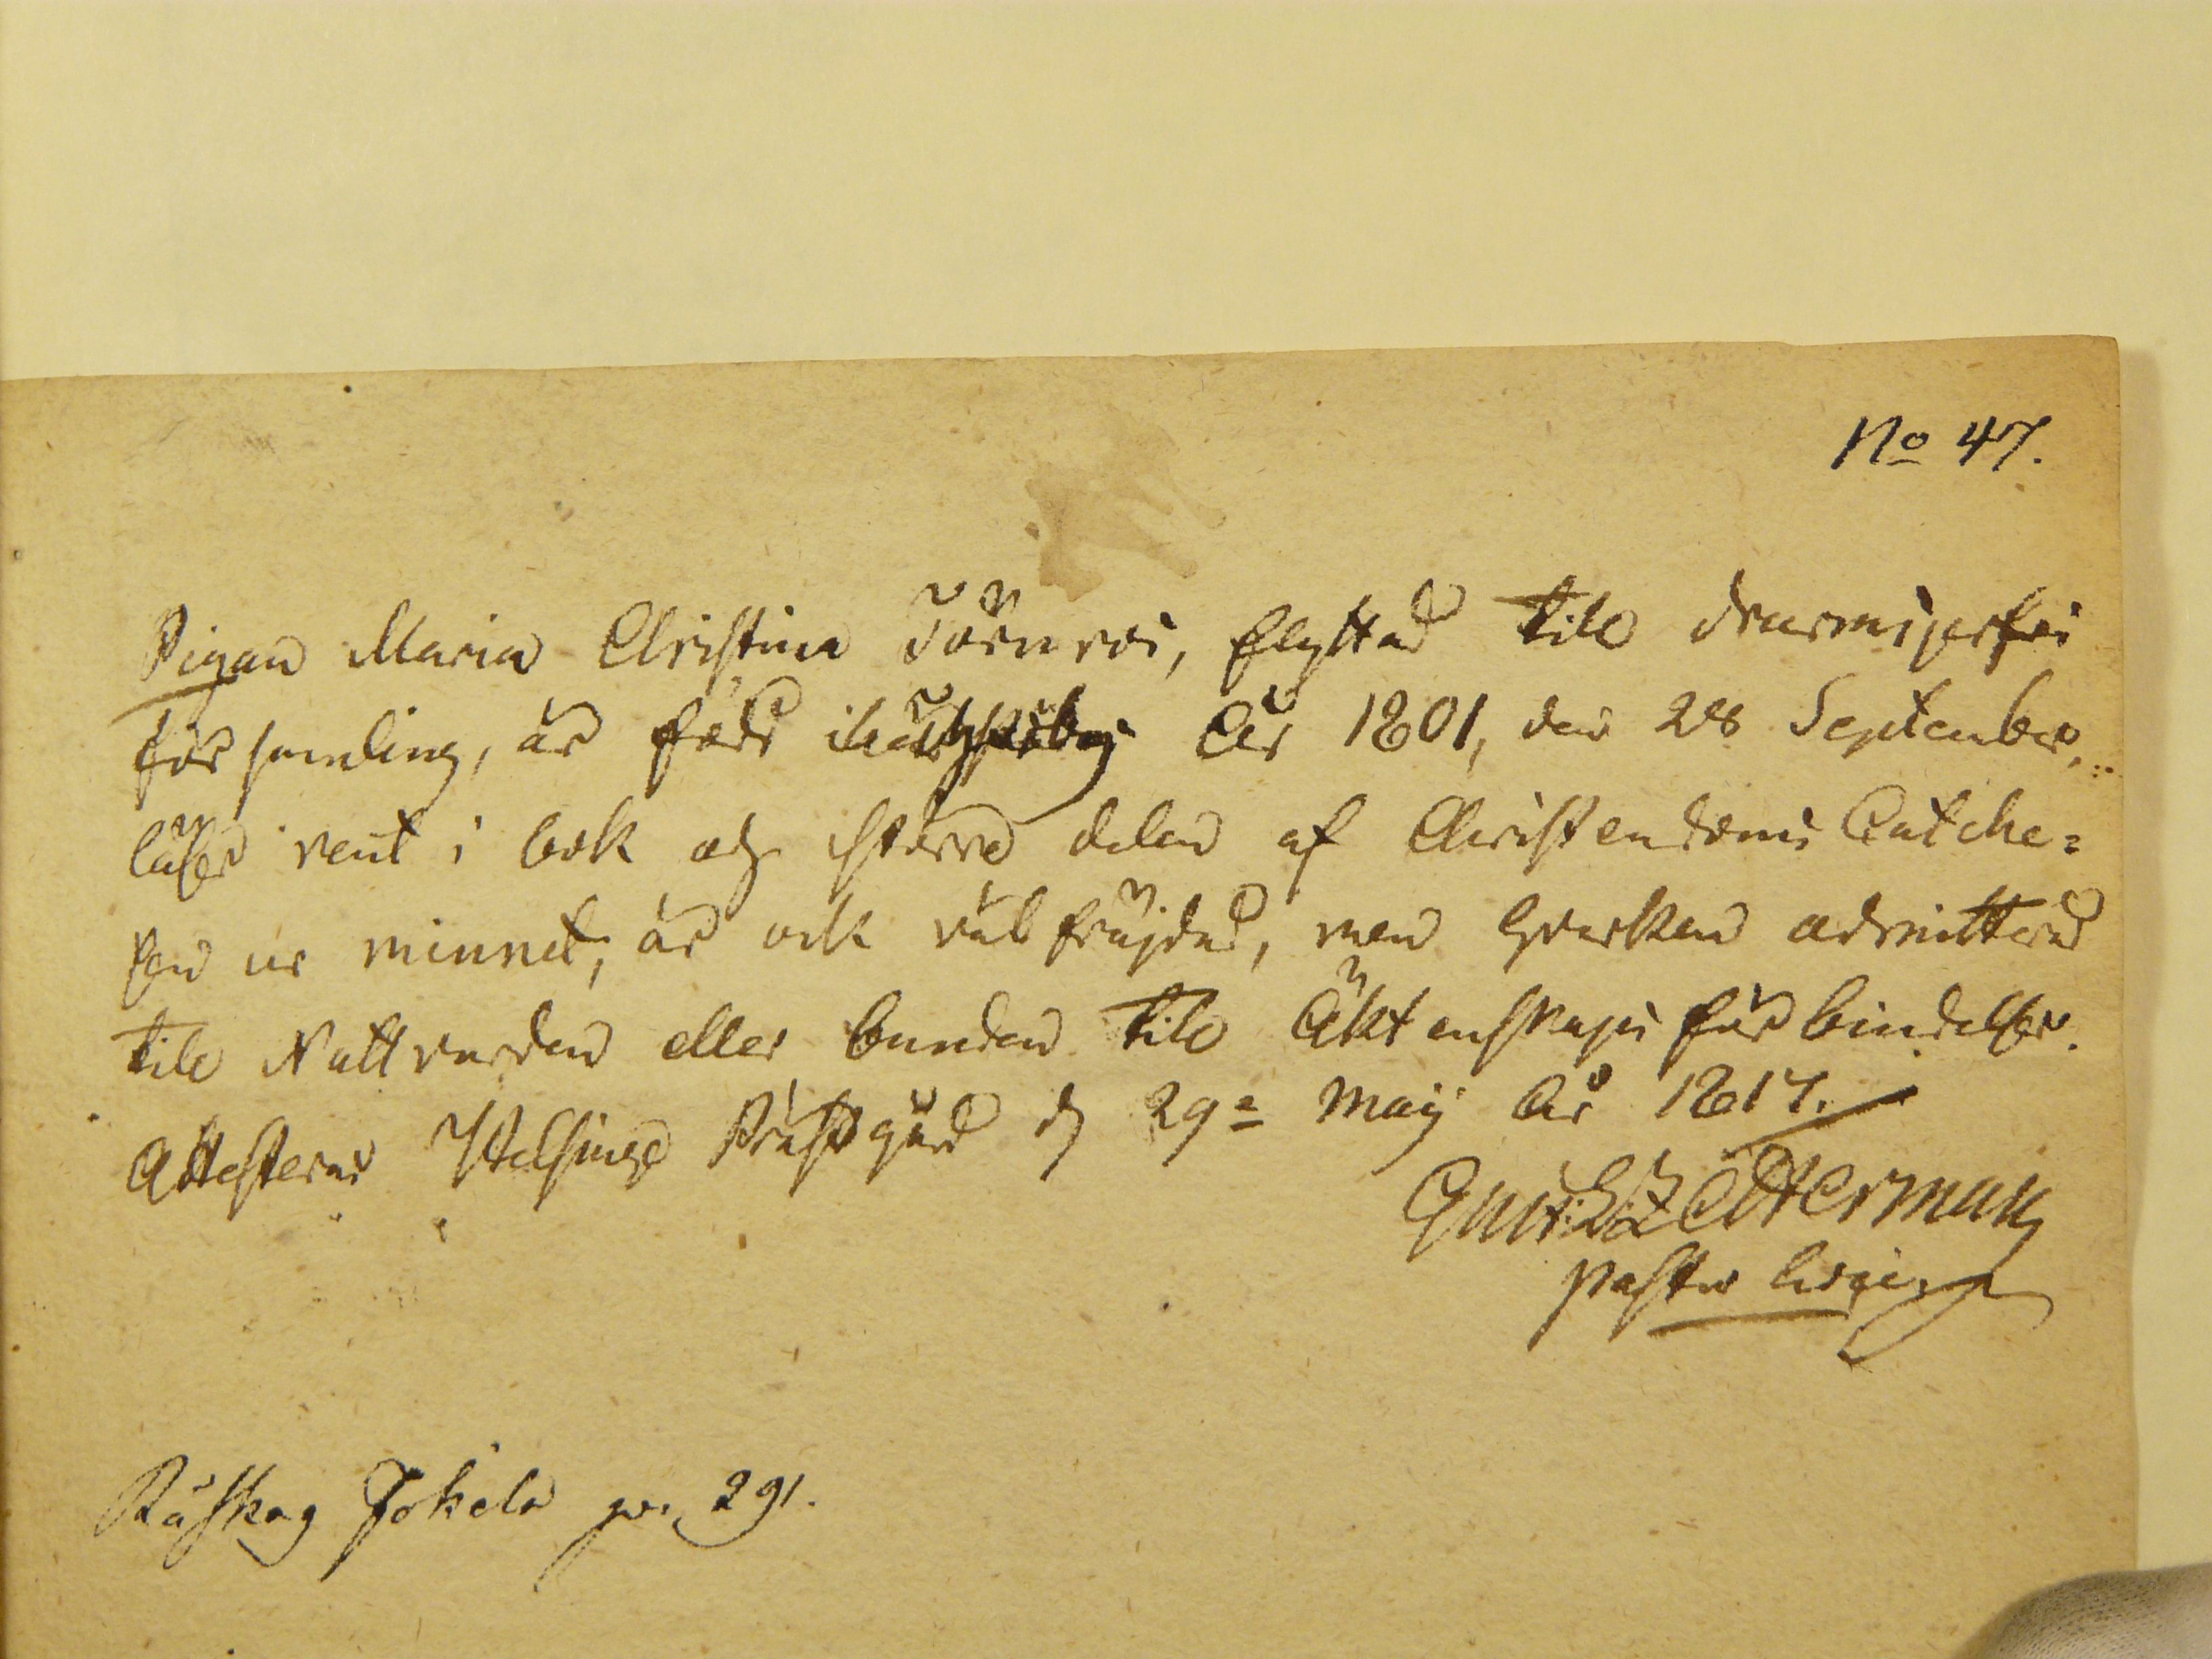 No 47.
Pigan Maria Christina Törnroi, flyttad till
församling, är född i år 1801, den 28 September,
läser rent i bok och större delen af Christendoms Catche=
sen ur minnet, är ock välfräjdad, men hvarken admitterad
till Nattvarden eller bunden till Äktenskaps förbindelser.
Attesterar Helsinge Prästgård d 29a Maij år 1817.
Zettermann
Pastor
Räskog Jokela p. 291.